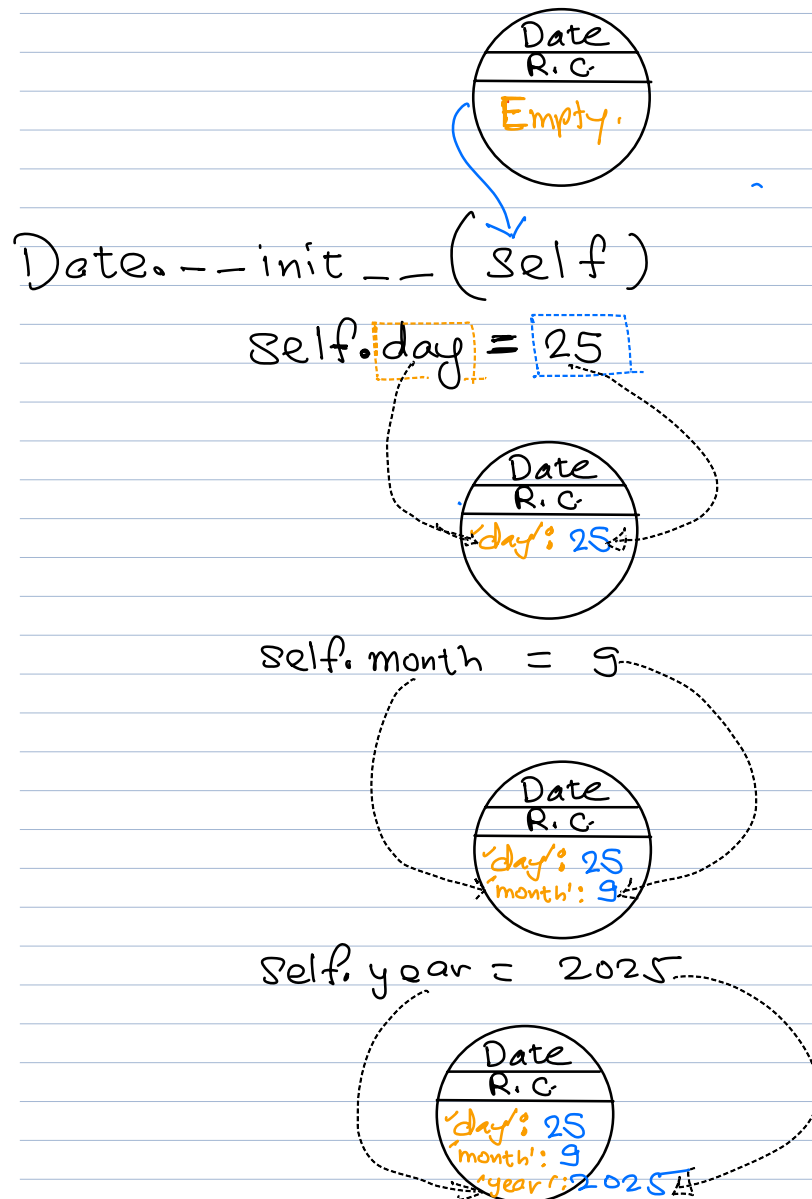 Date
R.C.
Empty.
Date.__init__(self)
self.day = 25
Date
R.C.
'day': 25
self.month = 9
Date
R.C.
'day': 25
'month': 9
self.year = 2025
Date
R.C.
'day': 25
'month': 9
'year': 2025